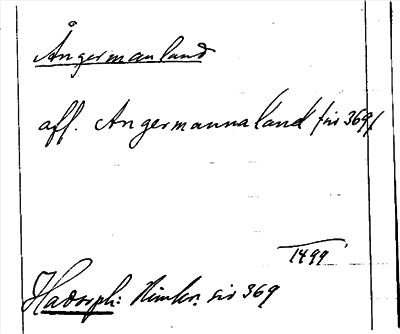 Ångermanland
aff. Angermannaland sid 369
1499
Hadorph: Rimkr. sid 369